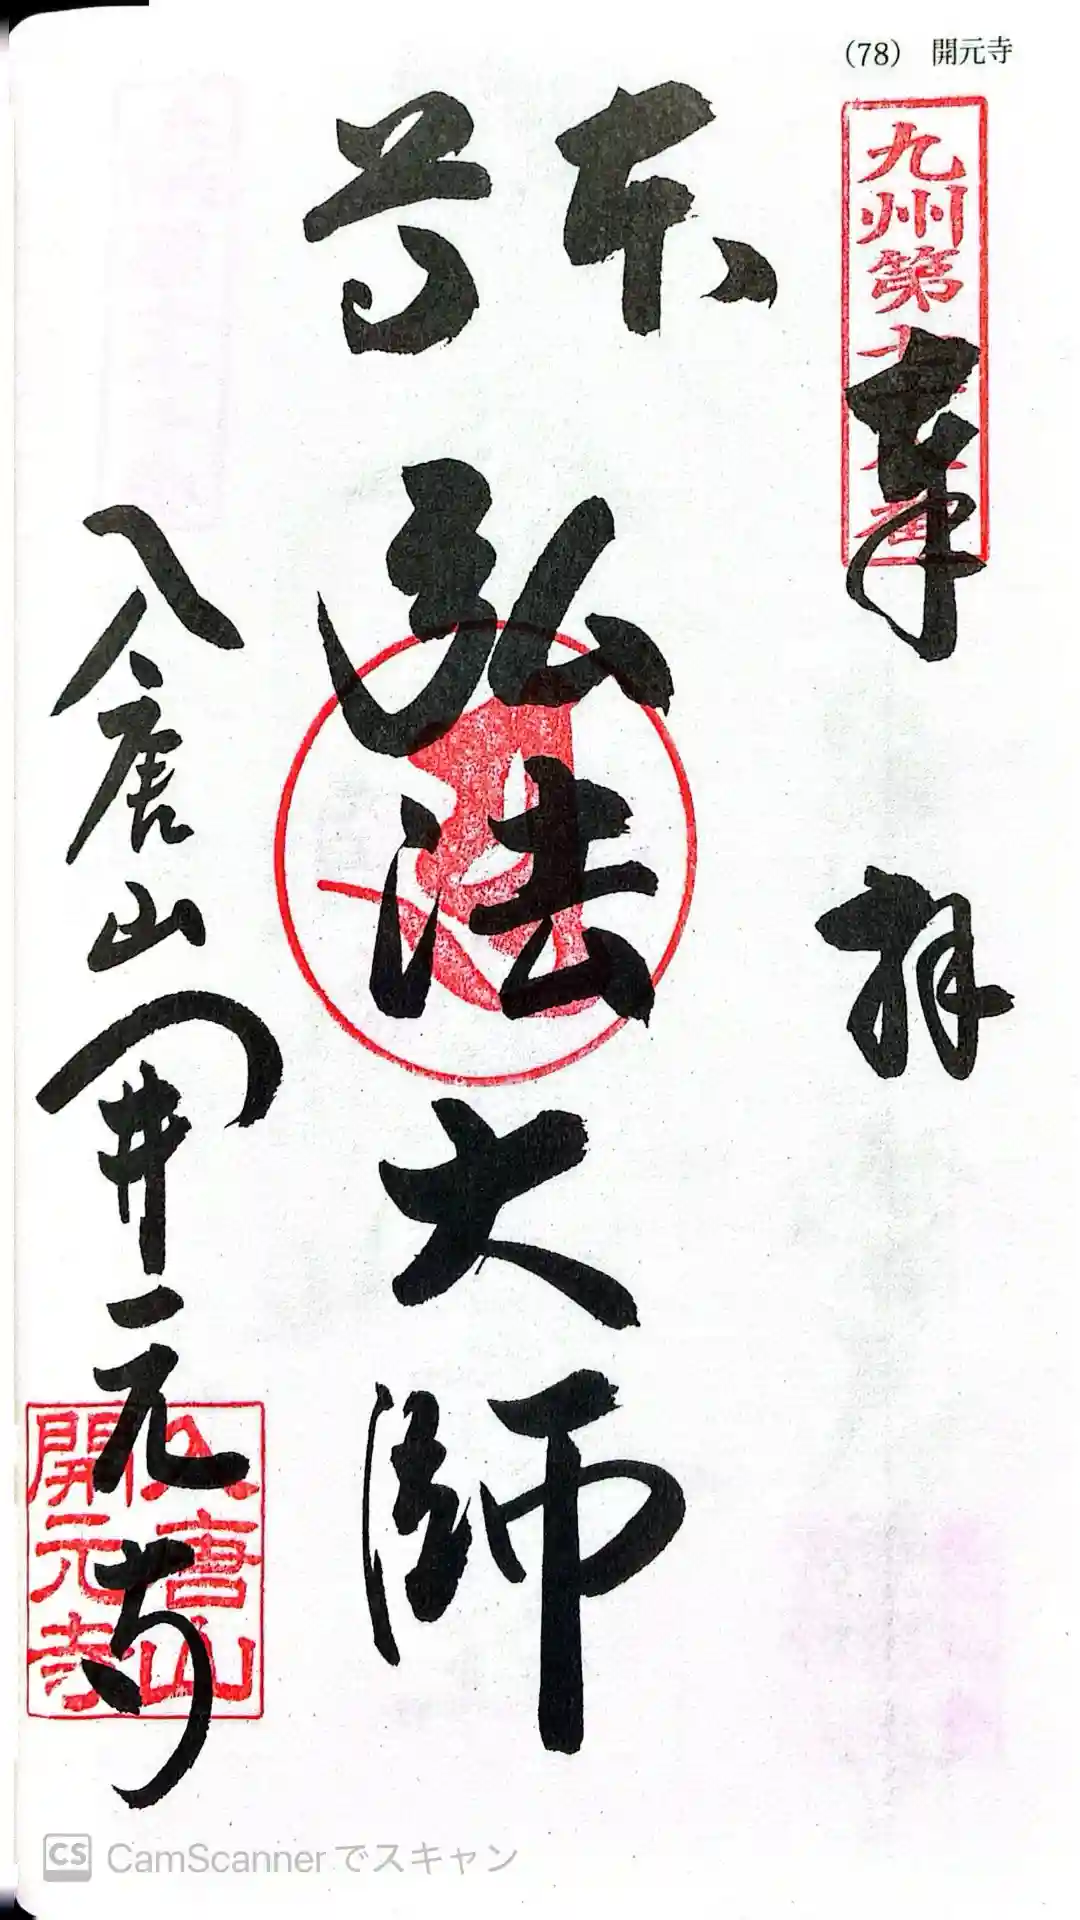 (78) 開元寺
九州第
奉拝
本尊
弘法大師
入唐山開元寺
入唐山
開元寺
CS CamScannerでスキャン